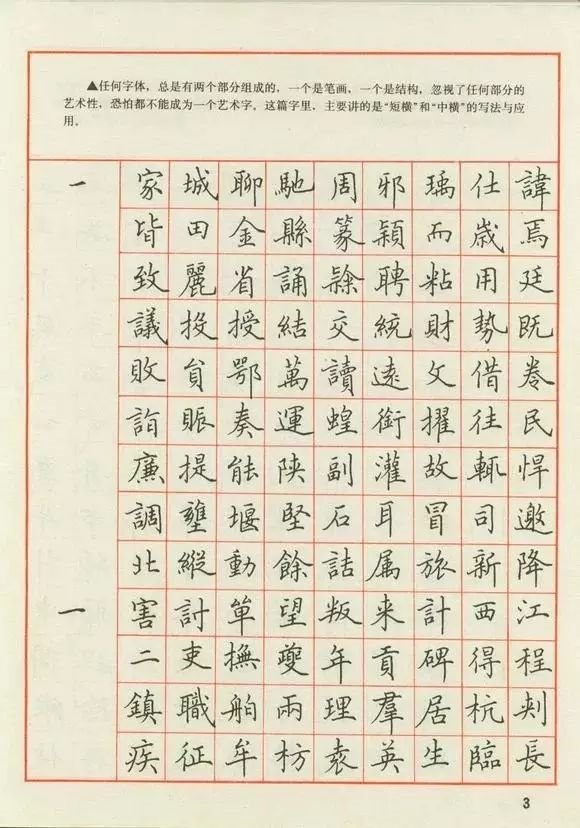 ▲任何字体，总是有两个部分组成的，一个是笔画，一个是结构，忽视了任何部分的
艺术性，恐怕都不能成为一个艺术字，这篇字里，主要讲的是“短横”和“中横”的写法与应
用。
一 家 城 聊 馳 周 邪 瑀 仕 諱
皆 田 金 縣 篆 穎 而 歲 焉
致 麗 省 誦 聘 粘 用 廷
議 投 授 結 交 統 財 勢 既
敗 貟 鄂 萬 讀 遠 文 借 卷
詣 賑 奏 運 蝗 銜 擢 往 民
廉 提 能 陝 副 灌 故 輒 悍
調 壅 堰 堅 石 耳 冒 司 邀
北 縱 動 餘 詁 属 旅 新 降
一 害 討 单 望 叛 来 計 西 江
二 吏 撫 夔 年 貢 碑 得 程
鎮 職 舶 兩 理 羣 居 杭 刺
疾 征 牟 枋 袁 英 生 臨 長
3